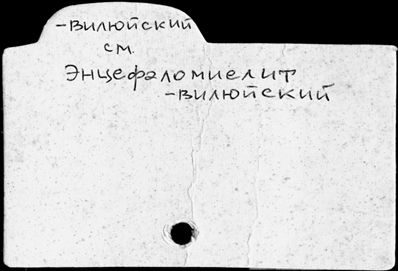 -Вилюйский
см.
Энцефаломиелит
-Вилюйский